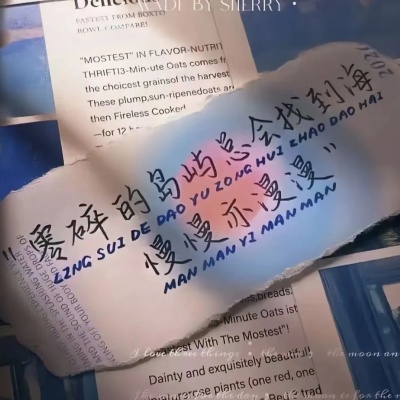 MADE BY SHERRY •
FASTEST FROM BOXTO
BOWL COMPARE!
"MOSTEST" IN FLAVOR-NUTRI
THRIFTI3-Min-ute Oats comes f
the choicest grainsof the harvest
These plump,sun-ripenedoats ar
then Fireless Cooked
—for 12 h
202
"零碎的岛屿总会找到海
LING SUI DE DAO YU ZONG HUI ZHAO DAO HAI
慢慢亦漫漫"
MAN MAN YI MAN MAN
s,breads.
-Minute Oats ist
est With The Mostest"!
I love three things • the moon an
Dainty and exquisitely beautiful
plants (one red, one